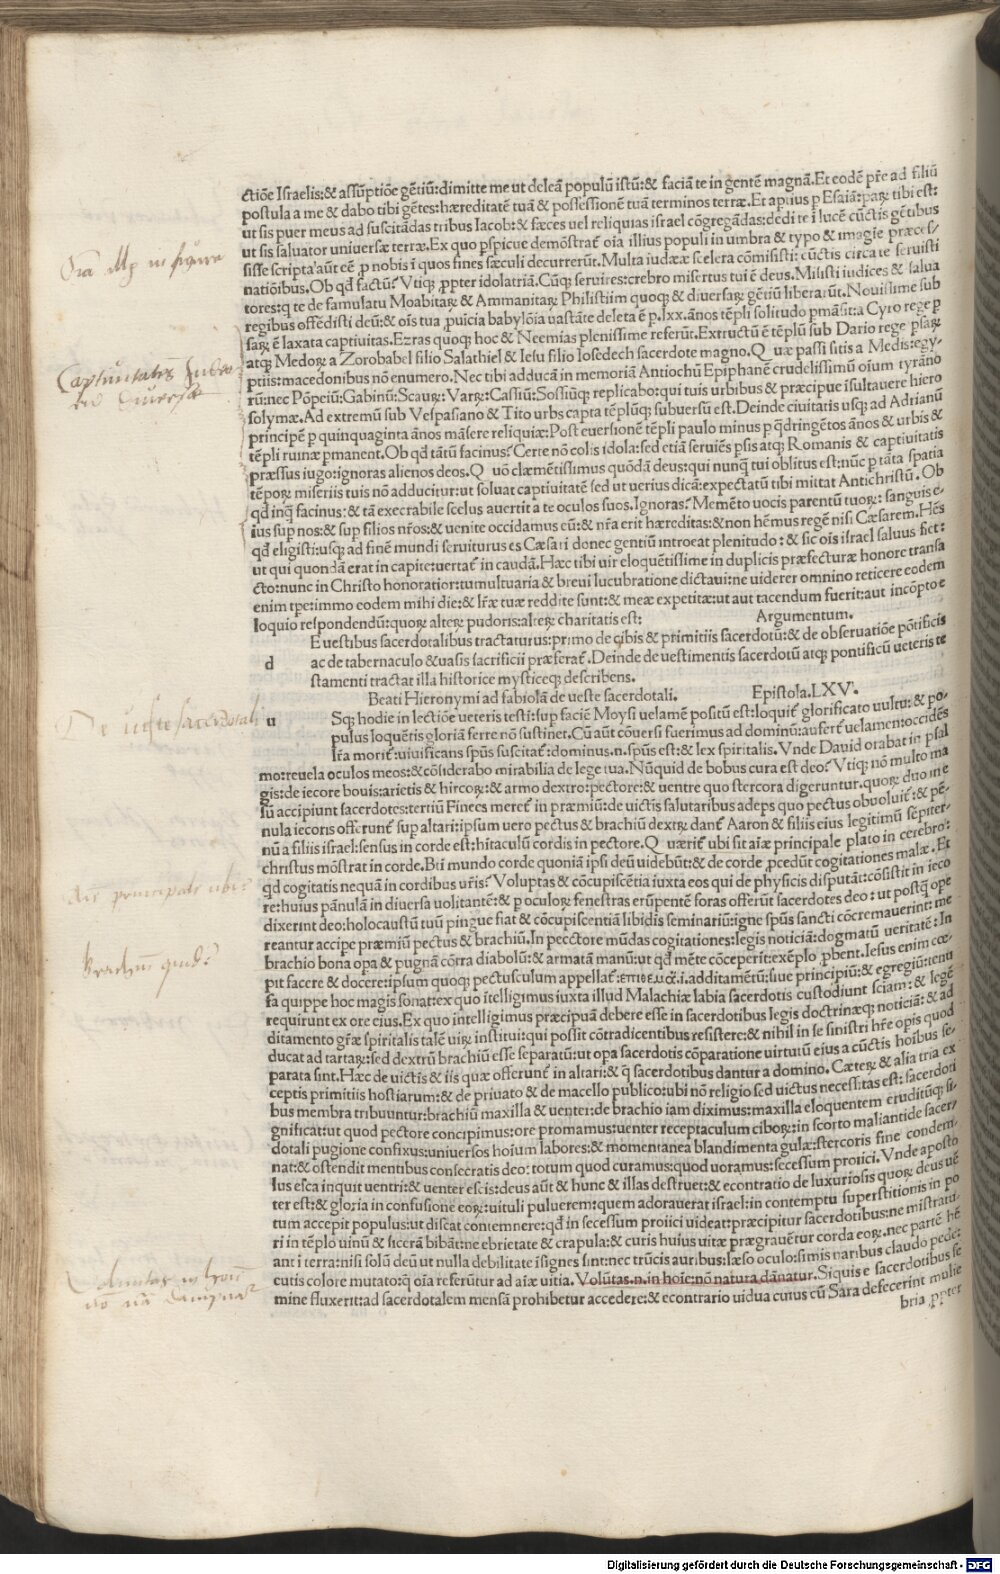 ctiõe Israelis:& assũptiõe gẽtiũ:dimitte me ut deleã populũ istũ:& faciã te in gentẽ magnã.Et eodẽ pr̃e ad filiũ
postula a me & dabo tibi gẽtes:hæreditatẽ tuã & possessionẽ tuã terminos terræ.Et aptius p Esaiã:parꝝ tibi est:
ut sis puer meus ad suscitãdas tribus Iacob:& fæces uel reliquias israel cõgregãdas:dedi te ĩ lucẽ cũctis gẽtibus
ut sis saluator universæ terræ.Ex quo pspicue demõstrat oĩa illius populi in umbra & typo & imagĩe præces/
Oĩa illis in figura
sisse scripta aũt eẽ p nobis ĩ quos fines sæculi decurrerũt.Multa iudææ scelera cõmisisti:cũctis circa te seruisti
natiõibus.Ob qd factũ?Vtiqꝫ ppter idolatriã.Cũqꝫ seruires:crebro misertus tui ẽ deus.Misisti iudices & salua
tores:q te de famulatu Moabitaꝝ & Ammanitaꝝ Philistiim quoqꝫ & diuersaꝝ gẽtiũ liberarũt.Nouissime sub
regibus offẽdisti deũ:& oĩs tua puĩcia babylõĩa uastãte deleta ẽ p.lxx.ãnos tẽpli solitudo pmãsit:a Cyro rege p
saꝝ ẽ laxata captiuitas.Ezras quoqꝫ hoc & Neemias plenissime referũt.Extructũ ẽ tẽplũ sub Dario rege psaꝝ
atqꝫ Medoꝝ a Zorobabel filio Salathiel & Iesu filio Iosedech sacerdote magno.Quæ passi sitis a Medis:egy/
ptiis:macedonibus nõ enumero.Nec tibi adducã in memoriã Antiochũ Epiphanẽ crudelissimũ oĩum tyrãno
rũ:nec Põpeiũ:Gabinũ:Scauꝝ:Varꝝ:Cassiũ:Sossiũqꝫ replicabo:qui tuis urbibus & præcipue ĩsultauere hiero
solymæ.Ad extremũ sub Vespasiano & Tito urbs capta tẽplũqꝫ subuersũ est.Deinde ciuitatis usqꝫ ad Adrianũ
principẽ p quinquaginta ãnos mãsere reliquiæ:Post euersionẽ tẽpli paulo minus p qdringẽtos ãnos & urbis &
tẽpli ruinæ pmanent.Ob qd tãtũ facinus?Certe nõ colis idola:sed etiã seruiẽs psis atqꝫ Romanis & captiuitatis
præssus iugo:ignoras alienos deos.Quõ clæmẽtissimus quõdã deus:qui nunqꝫ tui oblitus est:nũc p tãta spatia
tẽpoꝝ miseriis tuis nõ adducitur:ut soluat captiuitatẽ sed ut uerius dicã:expectatũ tibi mittat Antichristũ.Ob
qd inqꝫ facinus:& tã execrabile scelus auertit a te oculos suos.Ignoras?Memẽto uocis parentũ tuoꝝ:sanguis e/
ius sup nos:& sup filios nr̃os:& uenite occidamus eũ:& nr̃a erit hæreditas:& non hẽmus regẽ nisi Cæsarem.Hẽs
qd eligisti:usqꝫ ad finẽ mundi seruiturus es Cæsari donec gentiũ introeat plenitudo:& sic oĩs israel saluus fiet:
ut qui quondã erat in capite:uertat in caudã.Hæc tibi uir eloquẽtissime in duplicis præfecturæ honore transa
cto:nunc in Christo honoratior:tumultuaria & breui lucubratione dictaui:ne uiderer omnino reticere eodem
enim tpe:immo eodem mihi die:& lr̃æ tuæ reddite sunt:& meæ expetitæ:ut aut tacendum fuerit:aut incõpto e
loquio respondendũ:quoꝝ alteꝝ pudoris:alteꝝ charitatis est: Argumentum.
d Euestibus sacerdotalibus tractaturus:primo de cibis & primitiis sacerdotũ:& de obseruatiõe põtificis
ac de tabernaculo & uasis sacrificii præferat.Deinde de uestimentis sacerdotũ atqꝫ pontificũ ueteris te
stamenti tractat illa historice mysticeqꝫ describens.
Beati Hieronymi ad fabiolã de ueste sacerdotali. Epistola.LXV.
De ueste sacerdotali
u Sqꝫ hodie in lectiõe ueteris testi:sup faciẽ Moysi uelamẽ positũ est:loquit glorificato uultu:& po/
pulus loquẽtis gloriã ferre nõ sustinet.Cũ aũt cõuersi fuerimus ad dominũ:aufert uelamen:occidẽs
lr̃a morit:uiuificans spũs suscitat:dominus.n.spũs est:& lex spiritalis.Vnde Dauid orabat in psal
mo:reuela oculos meos:& cõsiderabo mirabilia de lege tua.Nũquid de bobus cura est deo?Vtiqꝫ nõ multo ma
gis:de iecore bouis:arietis & hircoꝝ:& armo dextro:pectore:& uentre quo stercora digeruntur.quoꝝ duo in e
sũ accipiunt sacerdotes:tertiũ Finees meret in præmiũ:de uictis salutaribus adeps quo pectus obuoluit:& pẽ/
nula iecoris offerunt sup altari:ipsum uero pectus & brachiũ dextꝝ dant Aaron & filiis eius legitimũ sẽpiter/
nũ a filiis israel:sensus in corde est:hĩtaculũ cordis in pectore.Quærit ubi sit aĩæ principale plato in cerebro:
christus mõstrat in corde.Bti mundo corde quoniã ipsi deũ uidebũt:& de corde pcedũt cogitationes malæ.Et
qd cogitatis nequã in cordibus ur̃is?Voluptas & cõcupiscẽtia iuxta eos qui de physicis disputãt:cõsistit in ieco
re:huius pãnulã in diuersa uolitantẽ:& p oculoꝝ fenestras erũpentẽ foras offerũt sacerdotes deo:ut postqꝫ ope
dixerint deo:holocaustũ tuũ pingue fiat & cõcupiscentiã libidis seminariũ:igne spũs sancti cõcremauerint:me
reantur accipe præmiũ pectus & brachiũ.In pecctore mũdas cogitationes:legis noticiã:dogmatũ ueritatẽ:In
brachio bona opa & pugnã cõrra diabolũ:& armatã manũ:ut qd mẽte cõceperit:exẽplo pbent.Iesus enim cœ/
Brachiũ quid?
pit facere & docere:ipsum quoqꝫ pectusculum appellat:επιθεμα.i.additamẽtũ:siue principiũ:& egregiũ:tenu
fa quippe hoc magis sonat:ex quo ĩtelligimus iuxta illud Malachiæ labia sacerdotis custodiunt sciam:& legẽ
requirunt ex ore eius.Ex quo intelligimus præcipuã debere esse in sacerdotibus legis doctrinæqꝫ noticiã:& ad
ditamento gr̃æ spiritalis talẽ uiꝝ instituit:qui possit cõtradicentibus resistere:& nihil in se sinistri hr̃e opis quod
ducat ad tartaꝝ:sed dextrũ brachiũ esse separatũ:ut opa sacerdotis cõparatione uirtutũ eius a cũctis hoĩbus se/
parata sint.Hæc de uictis & iis quæ offerunt in altari:& q sacerdotibus dantur a domino.Cæteꝝ & alia tria ex
ceptis primitiis hostiarum:& de priuato & de macello publico:ubi nõ religio sed uictus necessitas est:sacerdoti
bus membra tribuuntur:brachiũ maxilla & uenter:de brachio iam diximus:maxilla eloquentem eruditũqꝫ si/
gnificat:ut quod pectore concipimus:ore promamus:uenter receptaculum ciboꝝ:in scorto maliantide sacer/
dotali pugione confixus:uniuersos hoĩum labores:& momentanea blandimenta gulæ:stercoris fine condem/
nat:& ostendit mentibus consecratis deo:totum quod curamus:quod uoramus:secessum proiici.Vnde aposto
lus esca inquit uentri:& uenter escis:deus aũt & hunc & illas destruet:& econtratio de luxuriosis quoꝝ deus uẽ
ter est:& gloria in confusione eoꝝ:uituli puluerem:quem adorauerat israel:in contemptu superstitionis in po
tum accepit populus:ut discat contemnere:qd in secessum proiici uideat:præcipitur sacerdotibus:ne mistratu
ri in tẽplo uinũ & siccrã bibãt:ne ebrietate & crapula:& curis huius uitæ prægrauẽtur corda eoꝝ.nec partẽ hẽ
ant i terra:nisi solũ deũ ut nulla debilitate ĩsignes sint:nec trũcis auribus:læso oculo:simis naribus claudo pede:
cutis colore mutato:q oĩa referũtur ad aĩæ uitia.Volũtas.n.in hoĩe:nõ natura dãnatur.Siquis e sacerdotibus se
mine fluxerit:ad sacerdotalem mensã prohibetur accedere:& econtrario uidua cuius cũ Sara defecerint mulie
bria ppter
Digitalisierung gefördert durch die Deutsche Forschungsgemeinschaft - DFG